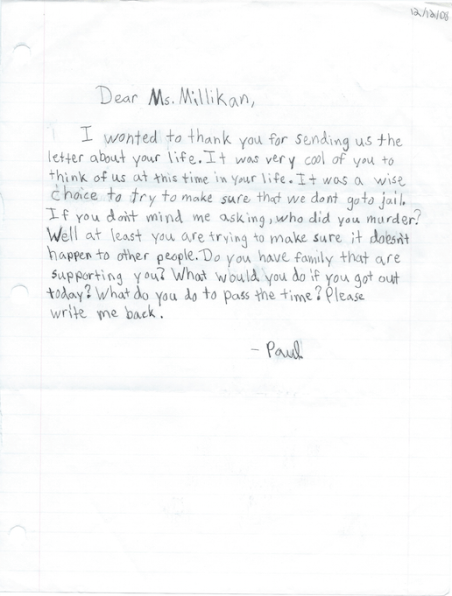 12/12/08
Dear Ms. Millikan,
I wonted to thank you for sending us the
letter about your life. It was very cool of you to
think of us at this time in your life. It was a wise
choice to try to make sure that we dont go to jail.
If you don't mind me asking, who did you murder?
Well at least you are trying to make sure it doesn't
happen to other people. Do you have family that are
supporting you? What would you do if you got out
today? What do you do to pass the time? Please
write me back.
- Paul